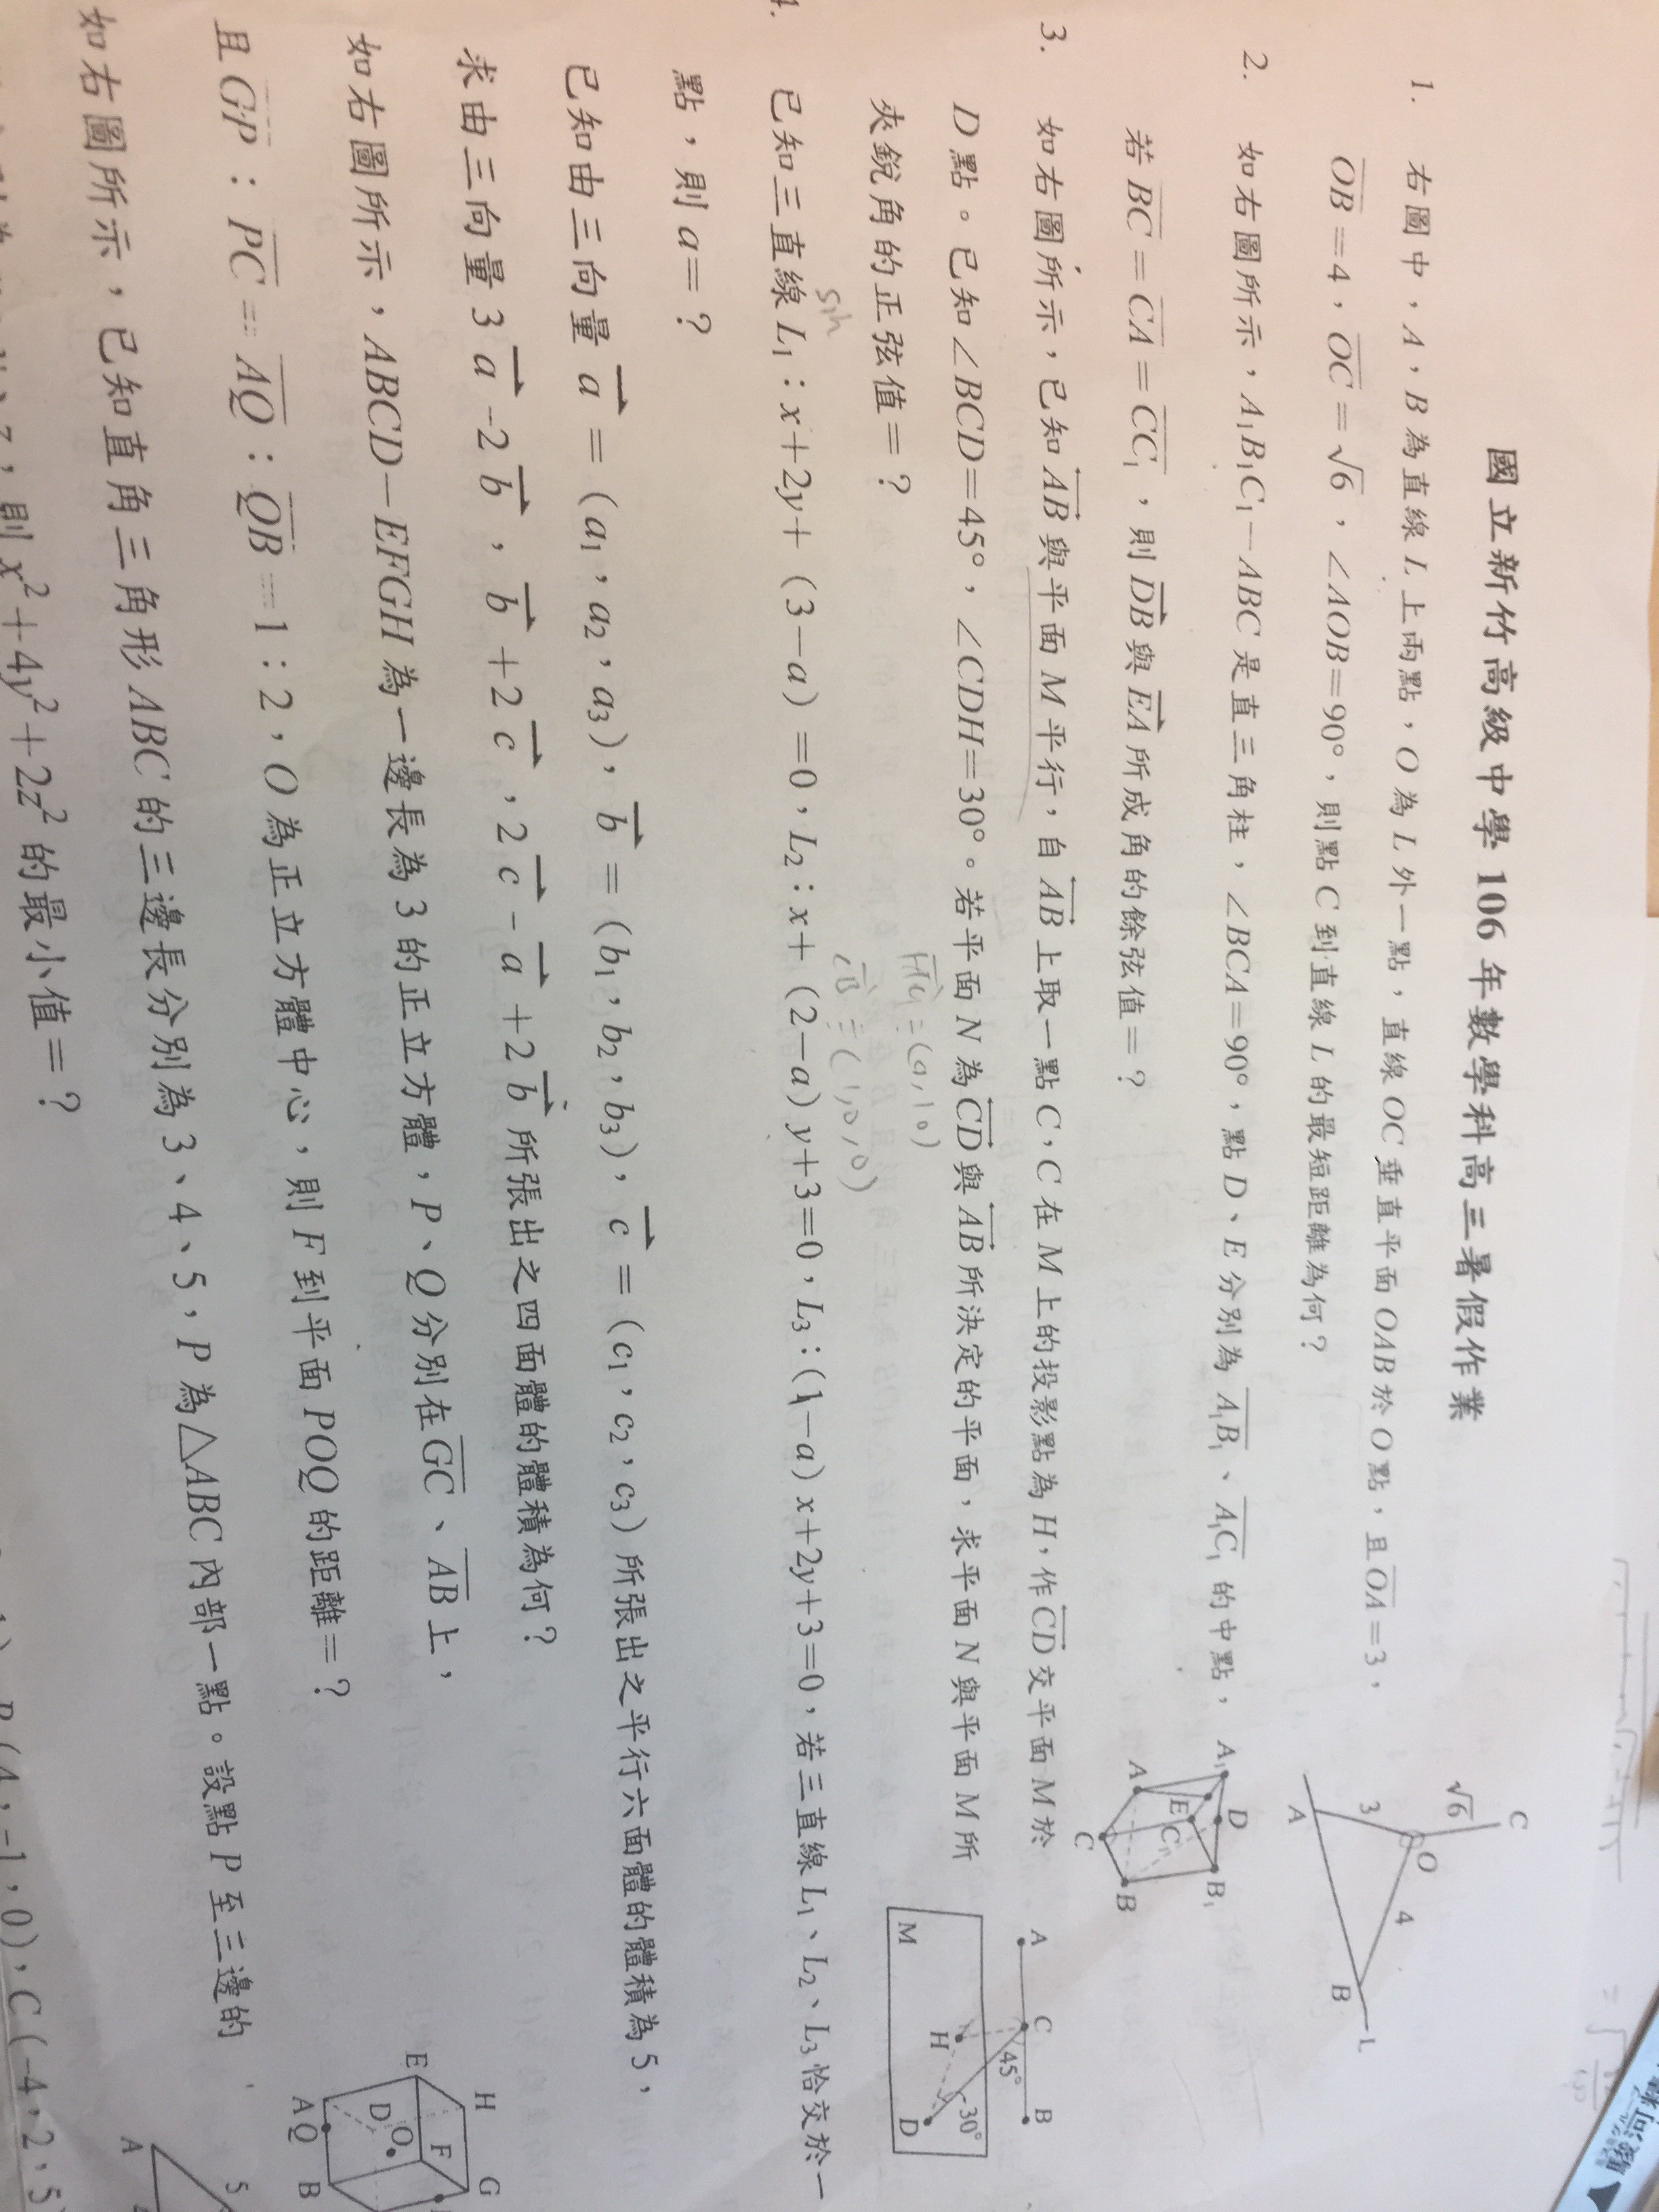 國立新竹高級中學 106 年數學科高三暑假作業
1. 右圖中，A，B 為直線 L 上兩點，O 為 L 外一點，直線 OC 垂直平面 OAB 於 O 點，且 OA＝3，
OB＝4，OC＝√6，∠AOB＝90°，則點 C 到直線 L 的最短距離為何？
C
√6
O
3
4
A
B
L
2. 如右圖所示，A₁B₁C₁－ABC 是直三角柱，∠BCA＝90°，點 D、E 分別為 A₁B₁、A₁C₁ 的中點，
若 BC＝CA＝CC₁，則 DB 與 EA 所成角的餘弦值＝？
A₁
D
B₁
E
C₁
A
C
B
3. 如右圖所示，已知 AB 與平面 M 平行，自 AB 上取一點 C，C 在 M 上的投影點為 H，作 CD 交平面 M 於
D 點。已知∠BCD＝45°，∠CDH＝30°。若平面 N 為 CD 與 AB 所決定的平面，求平面 N 與平面 M 所
夾銳角的正弦值＝？
sin
A
C
B
45°
H
30°
D
M
4. 已知三直線 L₁：x＋2y＋（3－a）＝0，L₂：x＋（2－a）y＋3＝0，L₃：（1－a）x＋2y＋3＝0，若三直線 L₁、L₂、L₃ 恰交於一
點，則 a＝？
已知由三向量 a＝（a₁，a₂，a₃），b＝（b₁，b₂，b₃），c＝（c₁，c₂，c₃）所張出之平行六面體的體積為 5，
求由三向量 3a-2b，b+2c，2c-a+2b 所張出之四面體的體積為何？
如右圖所示，ABCD－EFGH 為一邊長為 3 的正立方體，P、Q 分別在 GC、AB 上，
且 GP：PC＝AQ：QB＝1：2，O 為正立方體中心，則 F 到平面 POQ 的距離＝？
H
G
E
F
D
O
A
Q
B
如右圖所示，已知直角三角形 ABC 的三邊長分別為 3、4、5，P 為△ABC 內部一點。設點 P 至三邊的
z，則 x²＋4y²＋2z² 的最小值＝？
A
5
B（4，-1，0），C（-4，2，5）
駿河